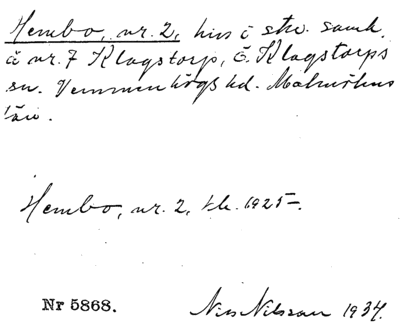 Hembo, nr. 2, hus i stn. samh.
å nr. 7 Klagstorp, Ö. Klagstorps
sn. Vemmenhögs hd. Malmöhus
län.
Hembo, nr. 2, 1925.
Nr 5868.
Nils Nilsson 1934.